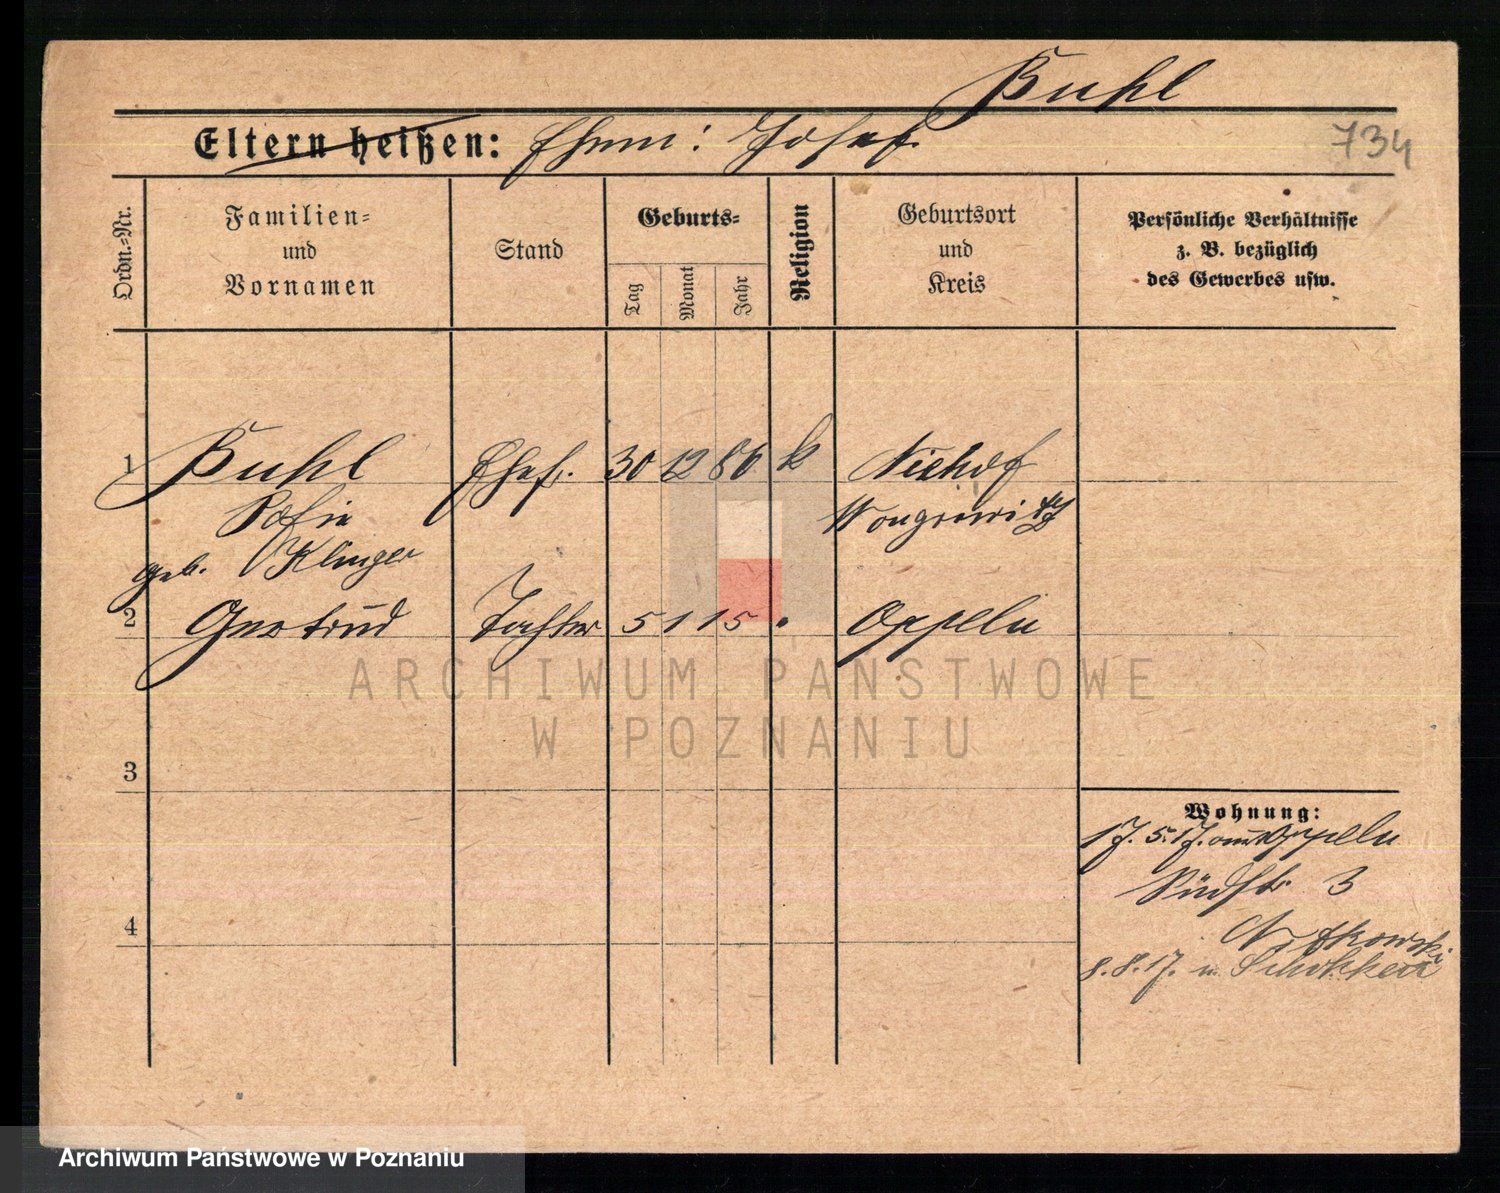 Buhl
Eltern heißen: Ehem: Josef
734
Ordn.=Nr.
Familien=
und
Vornamen
Stand
Geburts=
Tag
Monat
Jahr
Religion
Geburtsort
und
Kreis
Persönliche Verhältnisse
z. B. bezüglich
des Gewerbes usw.
1 Buhl Ehef. 30 12 86 k Niehof
Sofie Wongrowitz
geb. Klinger
2 Gertrud Tochter 5 1 15 " Oppeln
ARCHIWUM PAŃSTWOWE
W POZNANIU
3
Wohnung:
17. 5. 17. aus Oppeln
Südstr. 3
4
8. 8. 17. n. Schokken
Archiwum Państwowe w Poznaniu